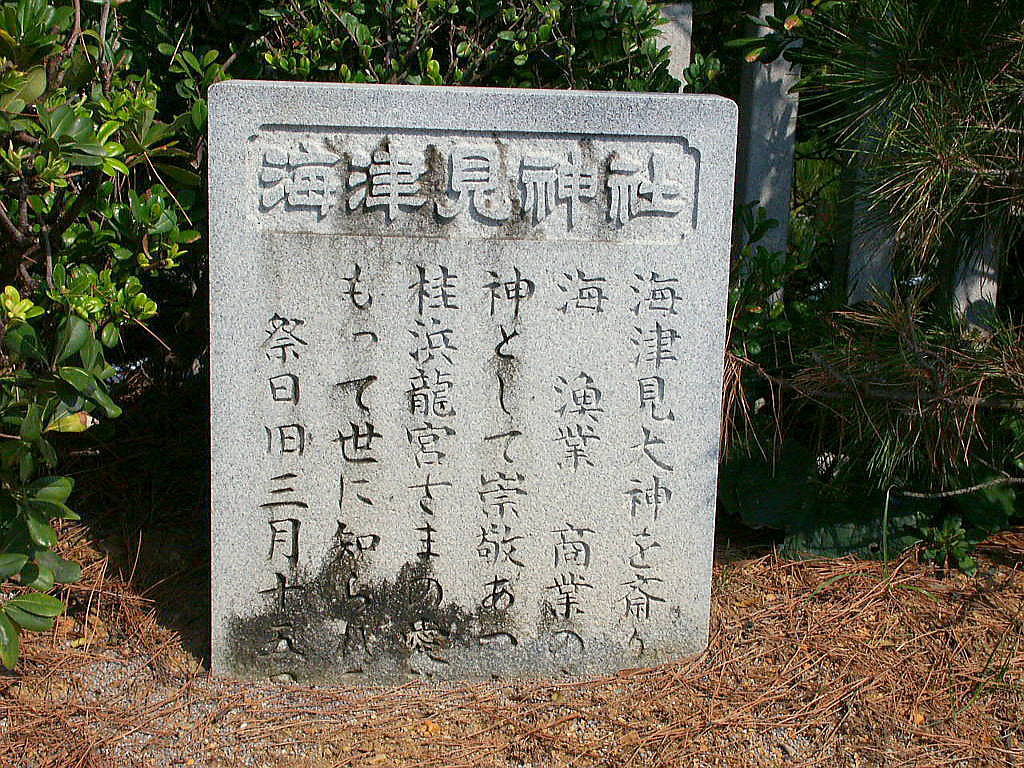 海津見神社
海津見大神を斎り
海 漁業 商業の
神として崇敬あつ
桂浜龍宮さまの愛
もって世に知られ
祭日旧三月十五